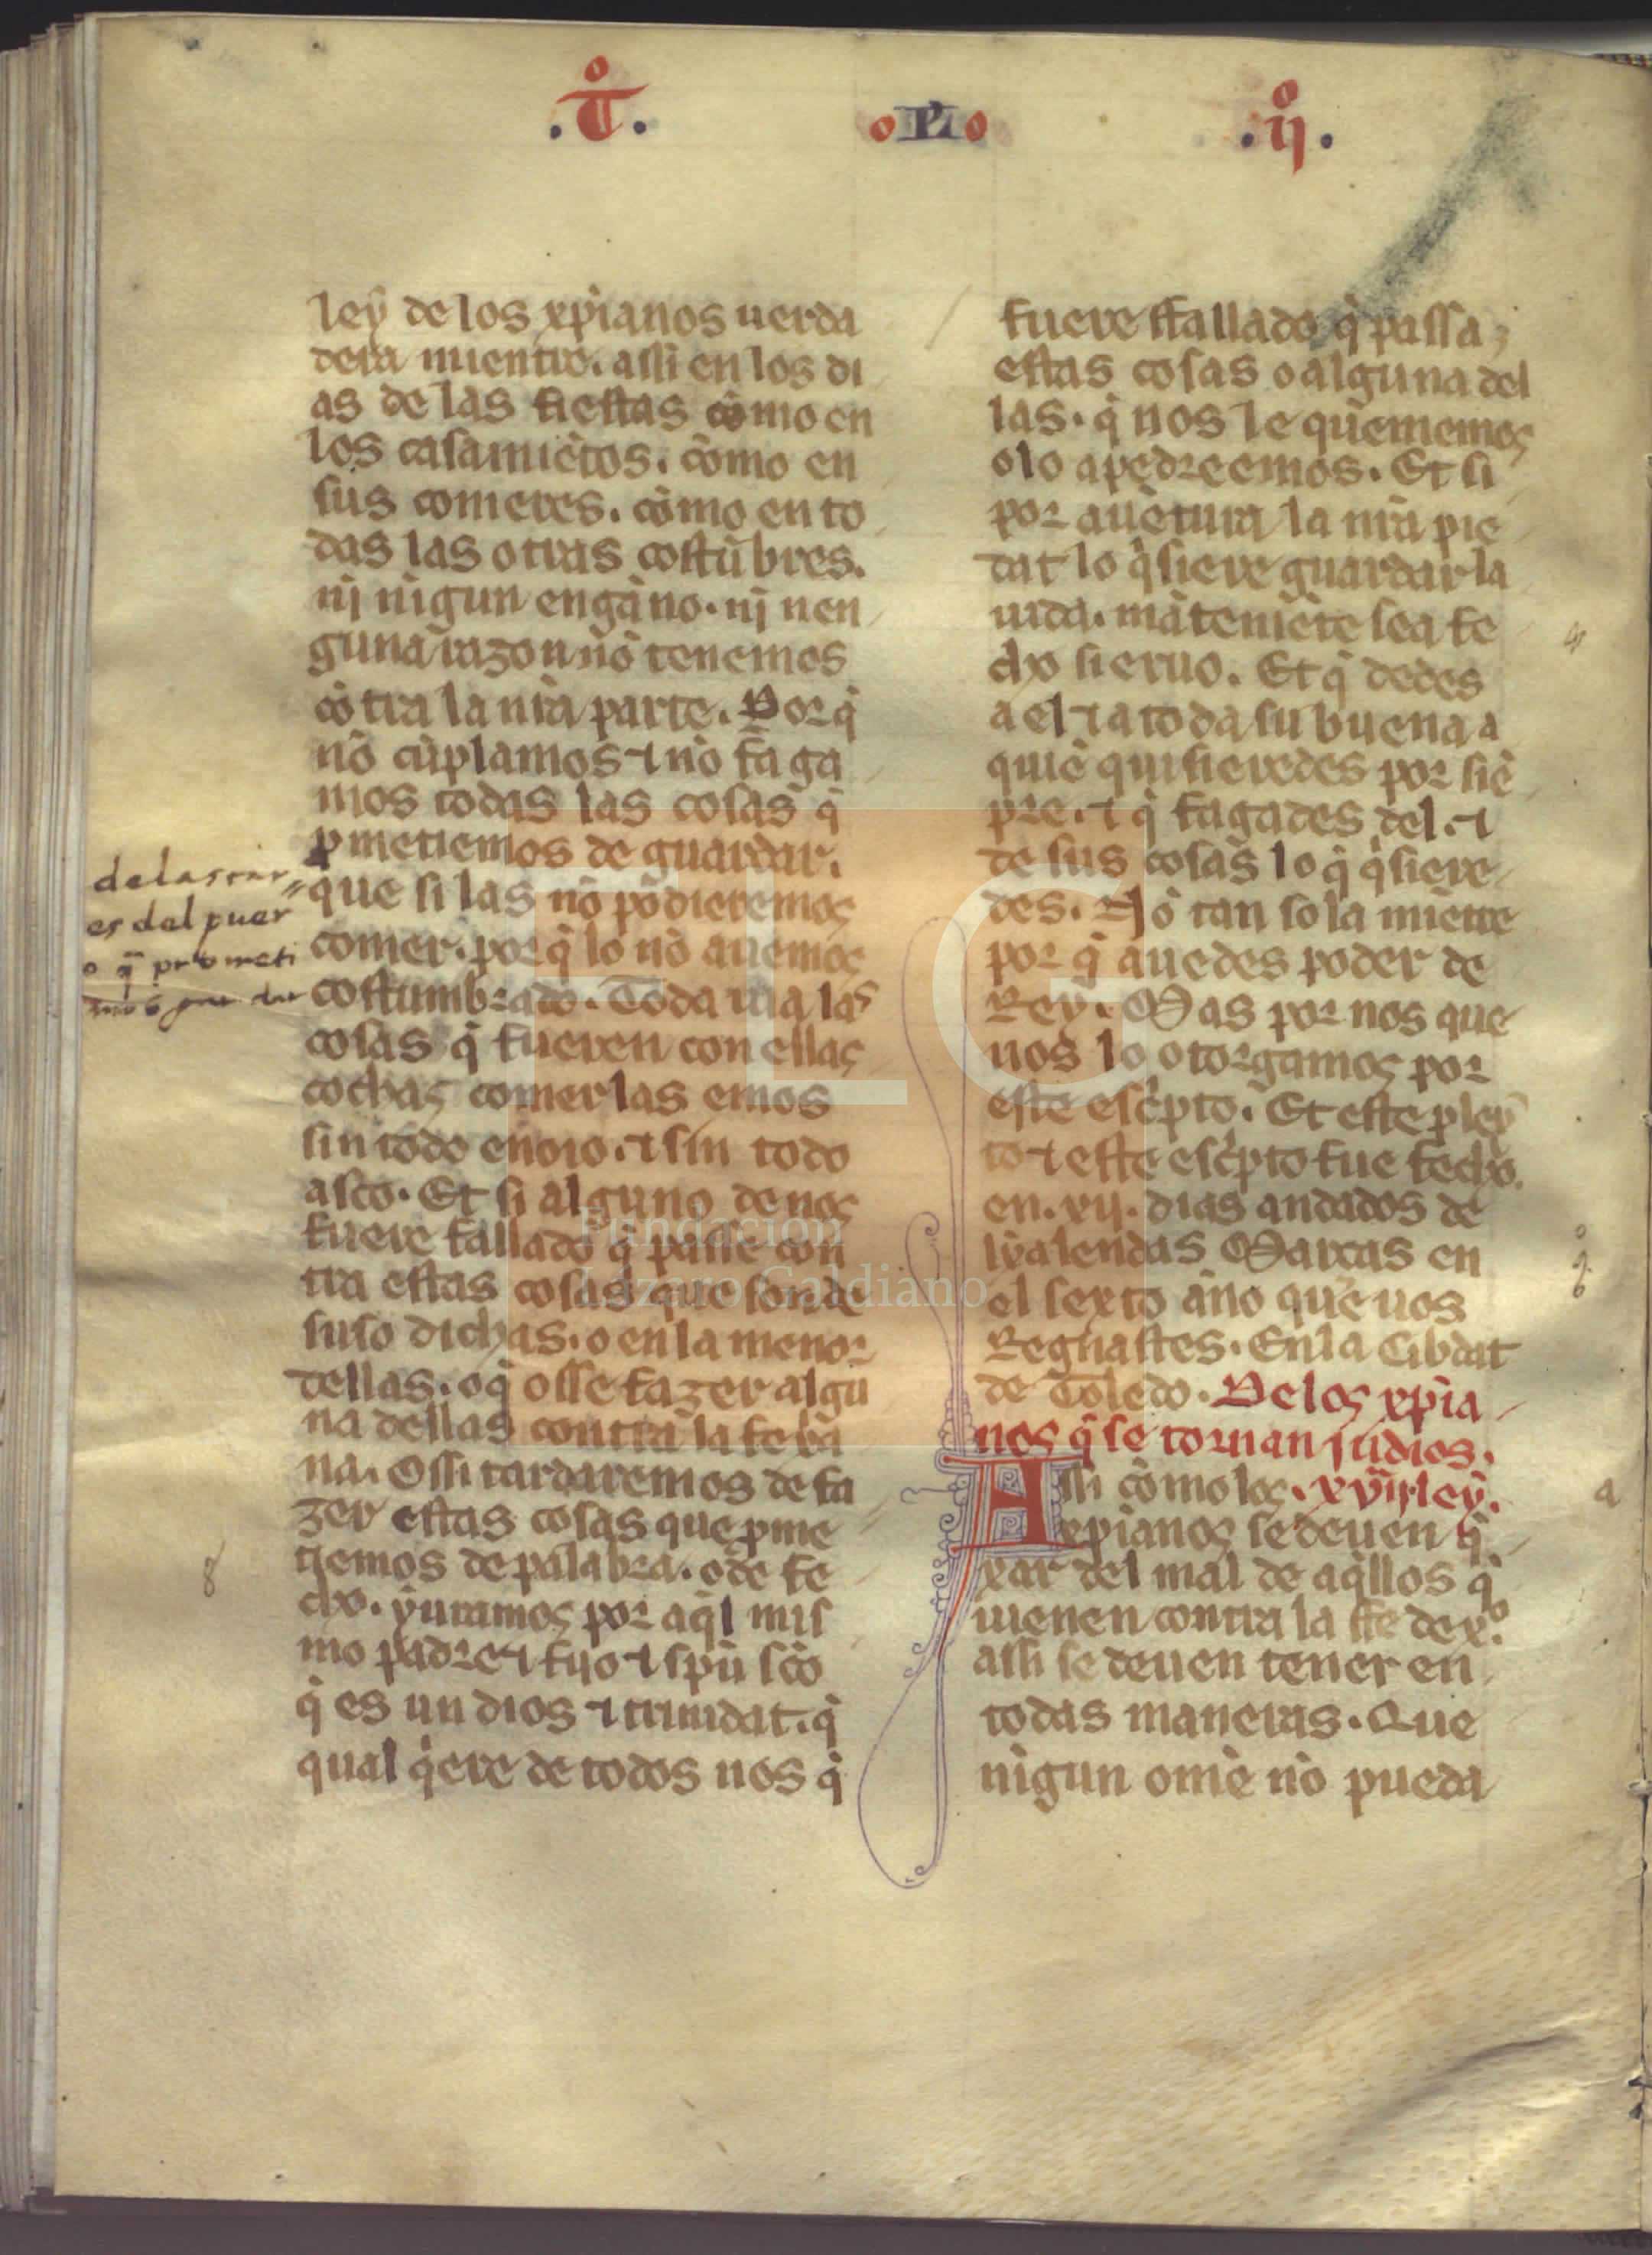 .T̊.
o PLI o
.ij̊.
ley de los xp̃ianos uerda
dera mientre. assi en los di
as de las fiestas cõmo en
los casamiẽtos. cõmo en
sus comeres. cõmo en to
das las otras costũbres.
nj nĩgun engãno. nj nen
guna razon nõ tenemos
cõtra la nr̃a parte. Por q̃
nõ cũplamos ⁊ nõ faga
mos todas las cosas q̃
ꝓmetiemos de guardar.
que si las nõ podieremos
comer. por q̃ lo nõ auemos
costumbrado. Toda uia las
cosas q̃ fueren con ellas
cochas comer las emos
sin todo enoio. ⁊ sin todo
asco. Et si alguno de nos
fuere fallado q̃ passe con
tra estas cosas que son de
suso dichas. o en la menor
dellas. o q̃ osse fazer algu
na dellas contra la fe xp̃ia
na. O si tardaremos de fa
zer estas cosas que ꝓme
tiemos de palabra. o de fe
cho. yuramos por aq̃l mis
mo padre ⁊ fijo ⁊ sp̃u sc̃o
q̃ es un dios ⁊ trinidat. q̃
qual q̃ere de todos nos q̃
de las car
es del puer
o q̃ prometi
mos guardar
fuere ffallado q̃ passa
estas cosas o alguna del
las. q̃ nos le quememos
o lo apedreemos. Et si
por auẽtura la nr̃a pie
dat lo q̃siere guardar la
uida. mãteniẽte sea fe
cho sieruo. Et q̃ dedes
a el ⁊ a toda su buena a
quiẽ quisieredes por siẽ
pre. ⁊ q̃ fagades del. ⁊
de sus cosas lo q̃ q̃siere
des. Nõ tan sola miẽtre
por q̃ auedes poder de
Rey. Mas por nos que
uos lo otorgamos por
este esc̃pto. Et este pley
to ⁊ este esc̃pto fue fecho.
en. xij. dias andados de
kalendas Marcas en
el sexto ãno que uos
Regnastes. En la Cibdat
de Toledo. De los xp̃ia
nos q̃ se tornan judios.
Assi cõmo los. xvij ley.
xp̃ianos se deuen q̃
xar del mal de aq̃llos q̃
uienen contra la ffe de xº.
assi se deuen tener en
todas maneras. Que
nĩgun omẽ nõ pueda
FLG
Fundación
Lázaro Galdiano